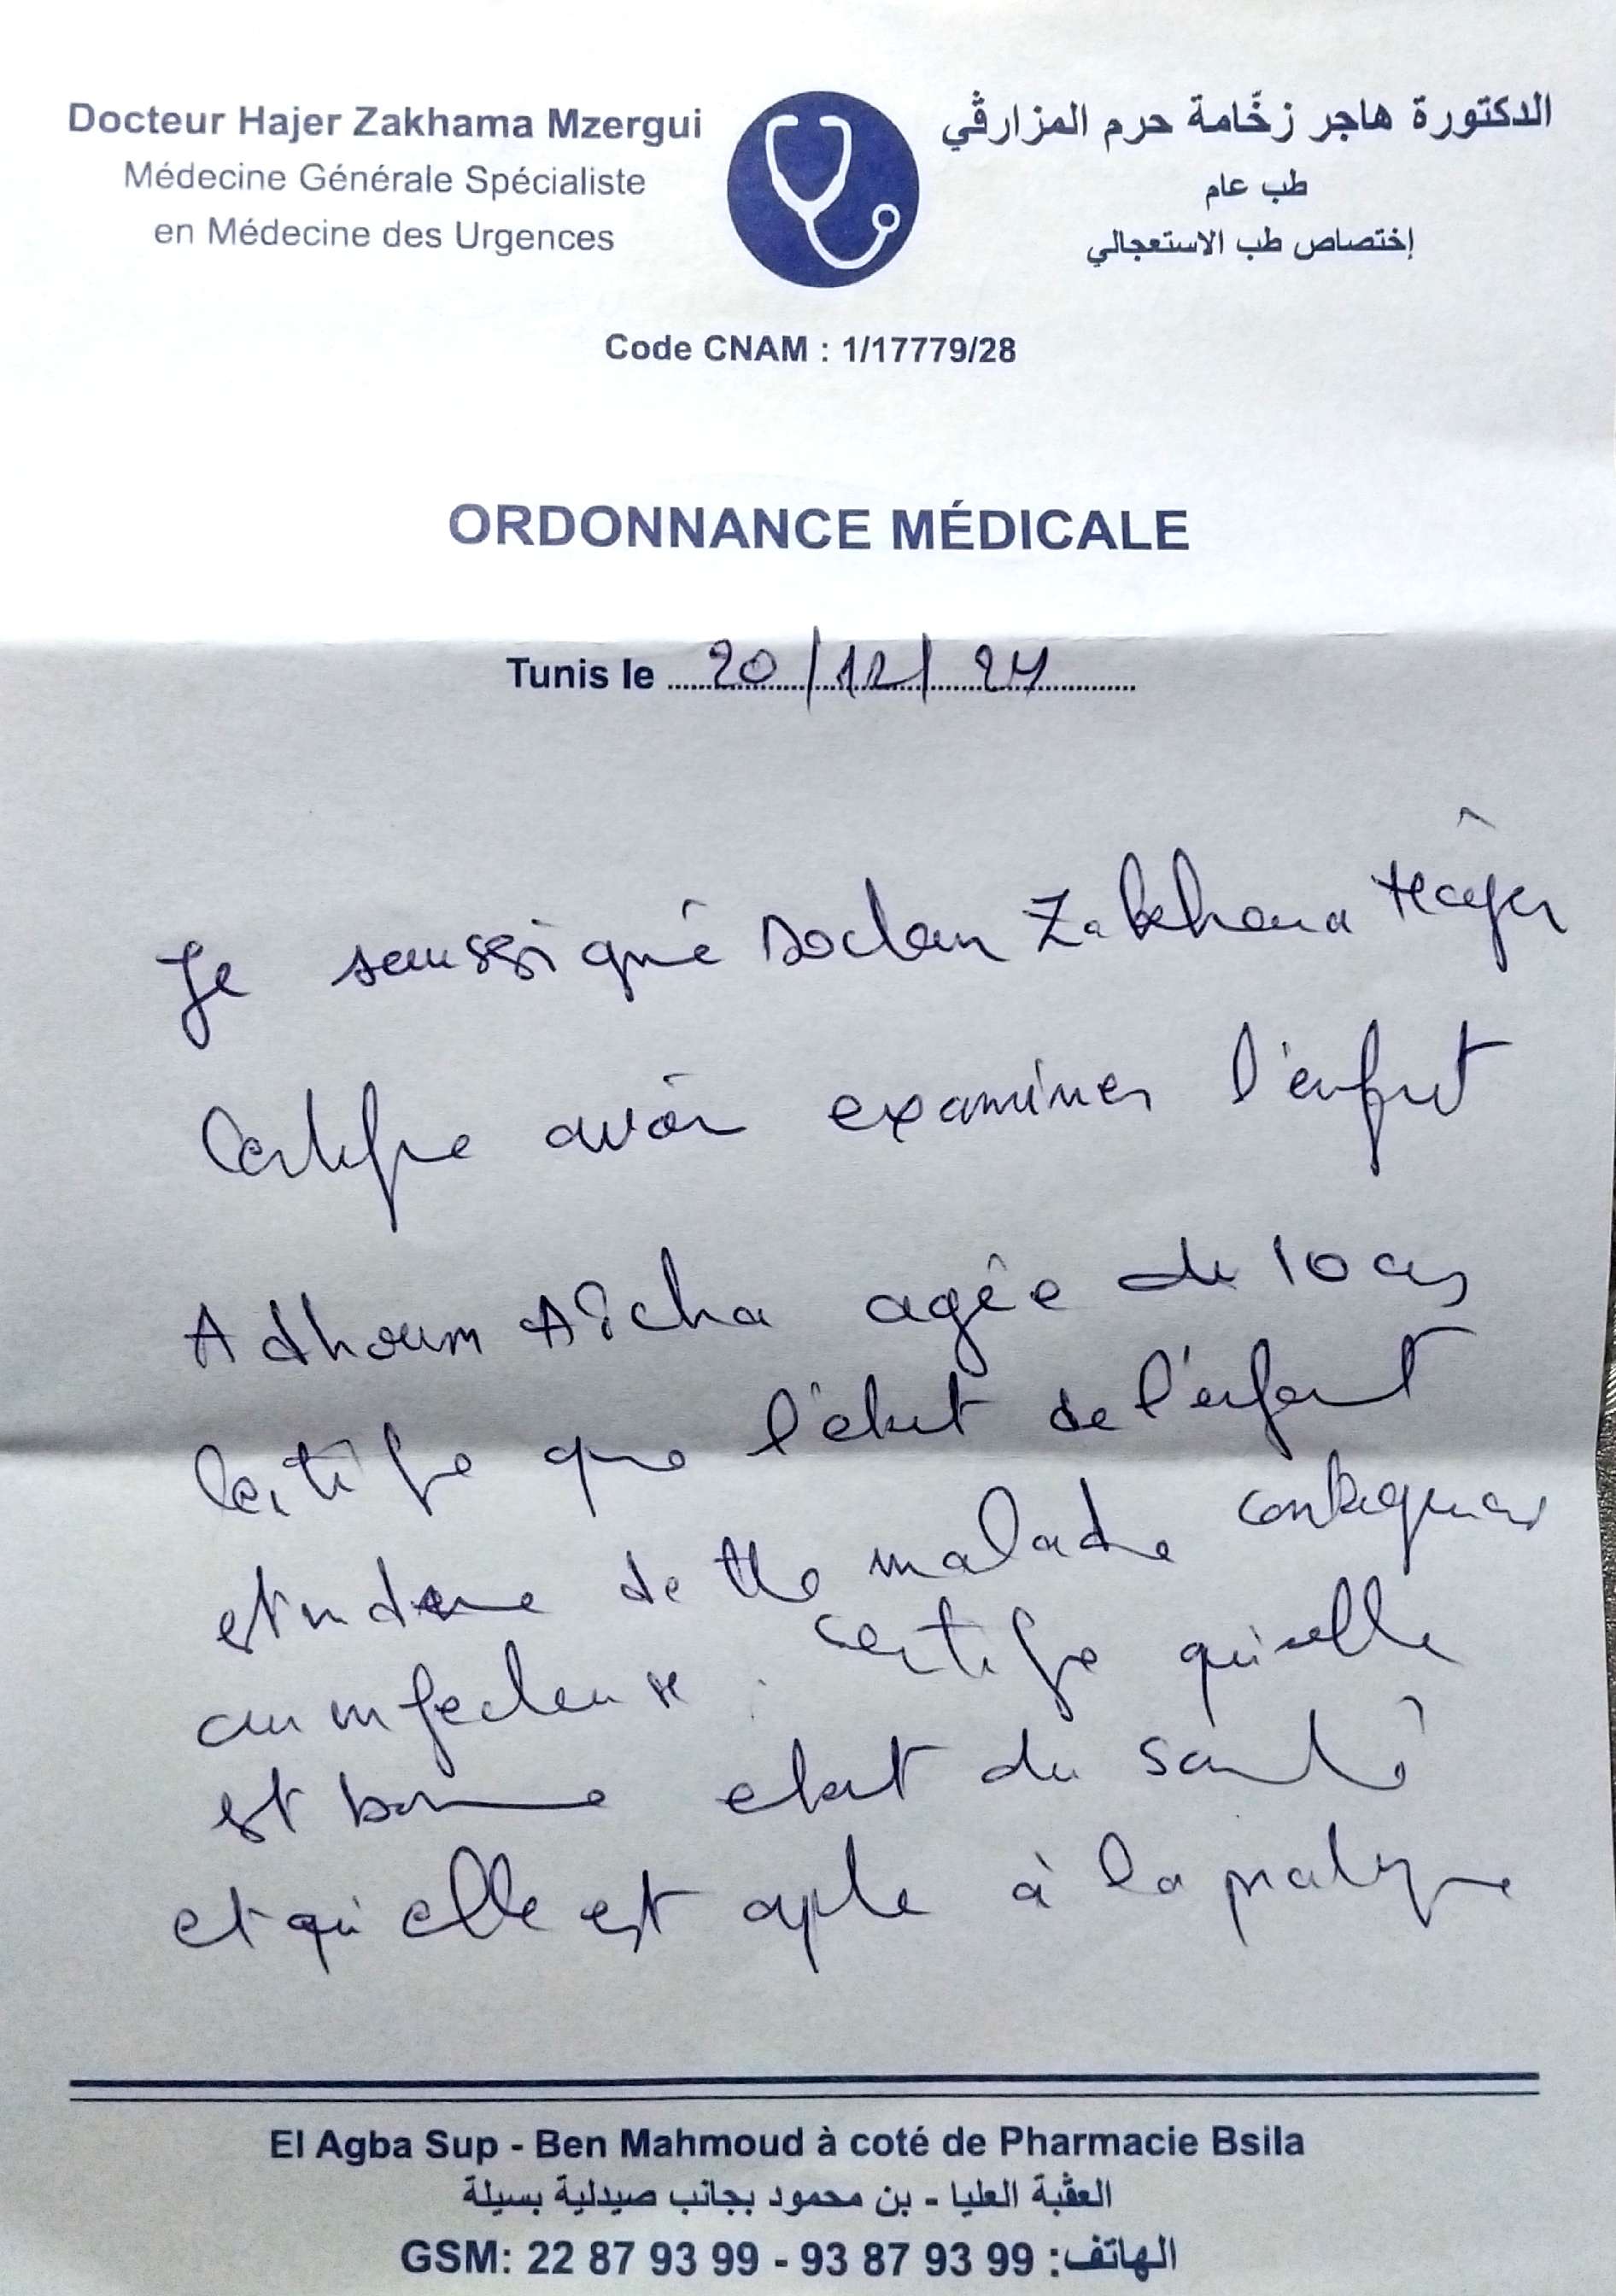 Docteur Hajer Zakhama Mzergui
Médecine Générale Spécialiste
en Médecine des Urgences
الدكتورة هاجر زخّامة حرم المزارڤي
طب عام
إختصاص طب الاستعجالي
Code CNAM : 1/17779/28
ORDONNANCE MÉDICALE
Tunis le 20/12/24
Je soussigné Docteur Zakhama Hâjer
Certifie avoir examiner l'enfant
Adhoum Aîcha agée de 10 ans
Certifie que l'état de l'enfant
est indemne de tte maladie contagieuse
ou infectieuse. Certifie qu'elle
est bonne etat de santé
et qu'elle est apte à la pratique
El Agba Sup - Ben Mahmoud à coté de Pharmacie Bsila
العڤبة العليا - بن محمود بجانب صيدلية بسيلة
GSM: 22 87 93 99 - 93 87 93 99 :الهاتف